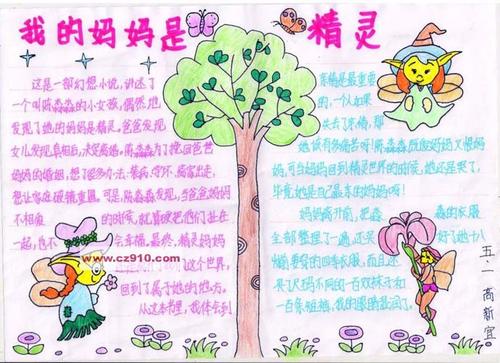 我的妈妈是精灵
这是一部幻想小说，讲述了
一个叫陈淼淼的小女孩，偶然地
发现了她的妈妈是精灵，爸爸发现
女儿发现真相后，决定离婚。陈淼淼为了挽回爸爸
妈妈的婚姻，想了很多办法：装病、守夜、离家出走，
想让家庭破镜重圆。可是，陈淼淼发现，当爸爸妈妈
不相爱的时候，就算硬把他们扯在
一起，也不会幸福。最终，精灵妈妈
了这个世界，
回到了属于她的地方。
从这本书里，我体会到
亲情是最重要
的，一个人如果
失去了亲情，那
她该有多痛苦啊！陈淼淼既怕妈妈又恨妈
妈，可当妈妈回到精灵世界的时候，她还是哭了，
毕竟她是自己最亲的妈妈啊！
妈妈离开前，把淼淼的衣服
全部整理了一遍，还买好了她十八
岁前要穿的四季衣服，而且还
来了码不同的一百双袜子和
一百条短裤，我的眼睛湿润了。
五·一 高新宜
www.cz910.com